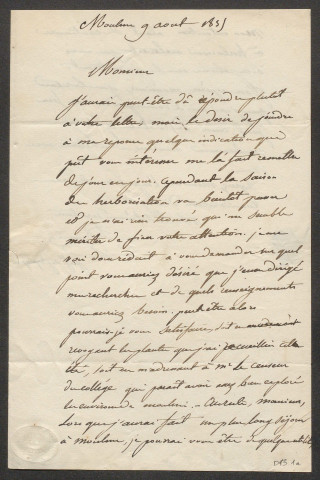 Moulins 9 aout 1835
Monsieur
J'aurais peut-être dû répondre plutot
à votre lettre, mais le desir de joindre
à ma reponse quelque indication que
pût vous intéresser me l'a fait remettre
de jour en jour. cependant la saison
des herborisations va bientot passer
et je n'ai rien trouvé qui me semble
mériter de fixer votre attention. je me
vois donc réduit à vous demander sur quel
point vous auriez désiré que j'eusse dirigé
mes recherches et de quels renseignements
vous auriez besoin. peut être alors
pourrais-je vous satisfaire, soit en
revoyant les plantes que j'ai recueillies cet
été, soit en m'adressant à Mr le censeur
du collège qui parait avoir assez bien exploré
les environs de moulins. Monsieur,
lorsque j'aurai fait un plus long séjour
à moulins, je pourrai vous être de quelque utilité,